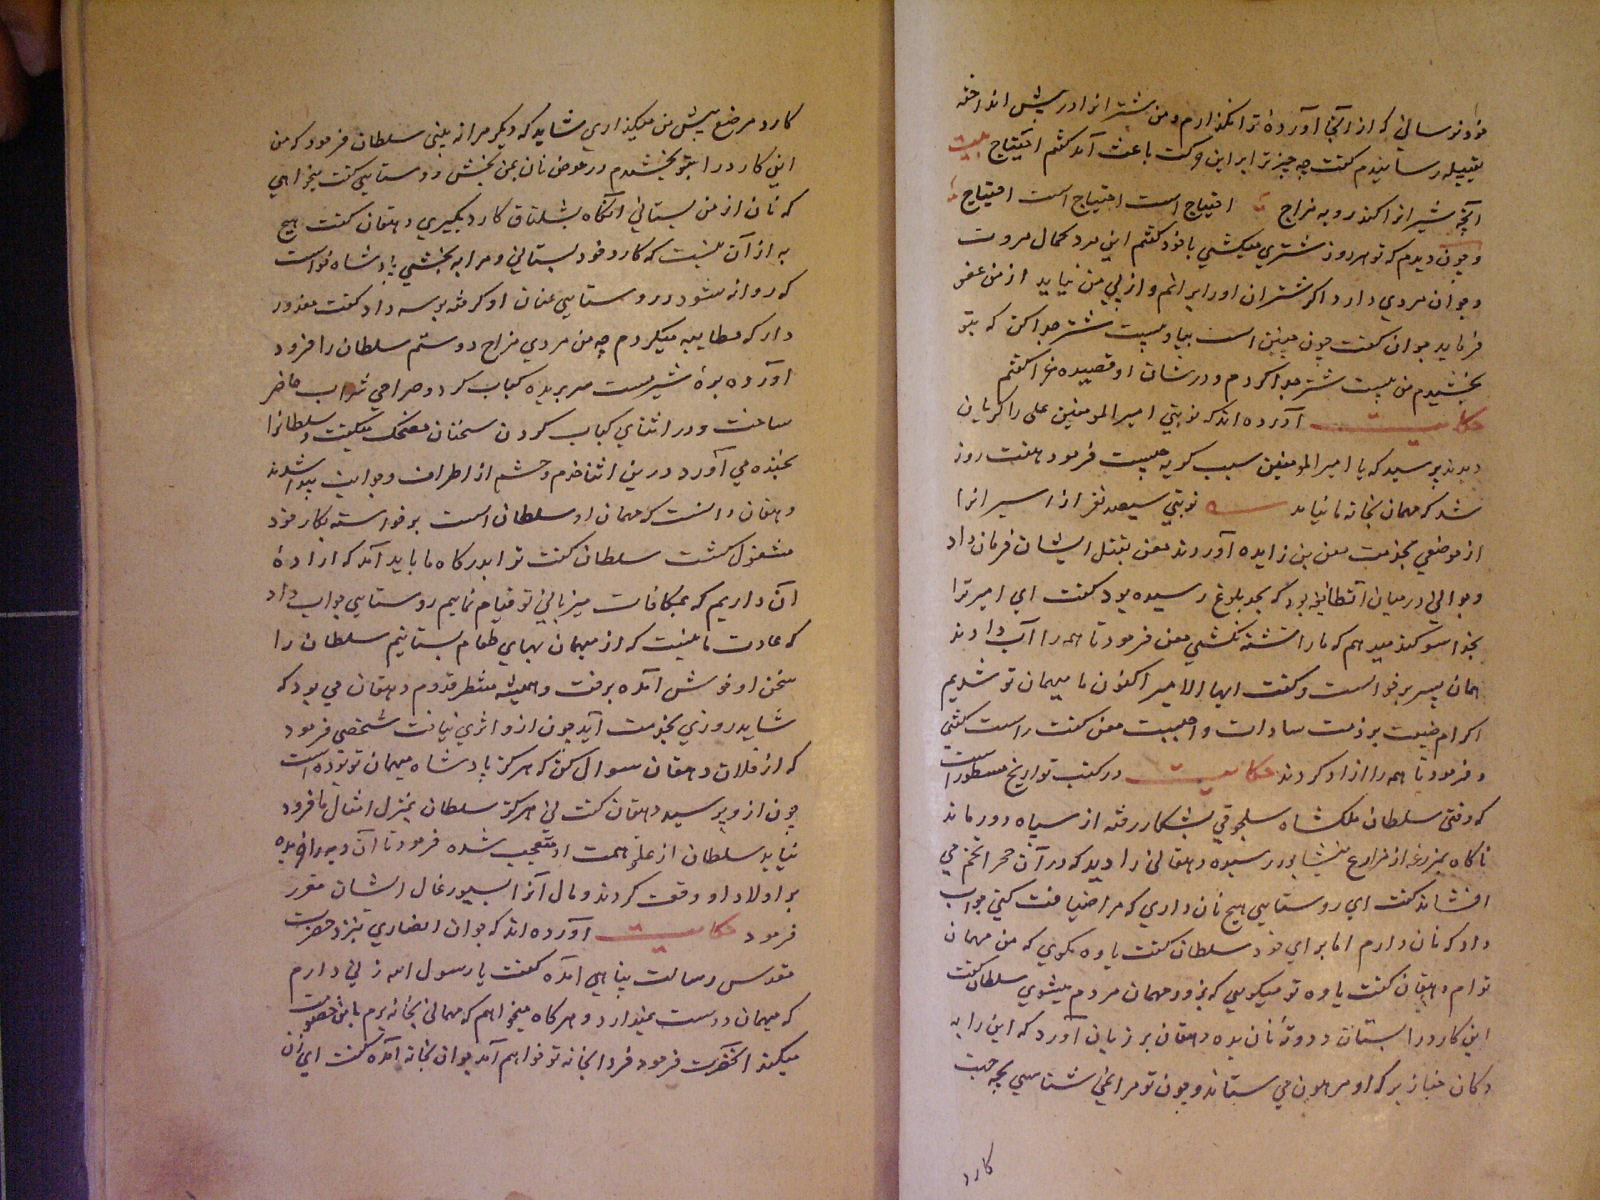 خود نوسالی که از آنجا آورده ترا نگذارم و من شتر انرا در پیش انداخته
بقبیله رسانیدم گفت چه چیز ترا براین حرکت باعث آمد گفتم احتیاج بیت
آنچه شیرانرا کند روبه مزاج احتیاج است احتیاج است احتیاج
و چون دیدم که تو هر روز شتری میکشی با خود گفتم این مرد کمال مروت
و جوان مردی دارد اگر شتران او را برانم و از پی من نیاید از من عفو
فرماید جوان گفت چون چنین است بیا و بیست شتر جدا کن که بتو
بخشیدم من بیست شتر جدا کردم و در شان او قصیده غرا گفتم
حکایت آورده اند که نوبتی امیر المومنین علی را گریان
دیدند پرسید که یا امیر المومنین سبب گریه چیست فرمود هفت روز
شد که مهمان بخانه ما نیامد نوبتی سیصد نفر از اسیرانرا
از موضعی بخدمت معن بن زایده آوردند معن بقتل ایشان فرمان داد
و جوانی درمیان آنطایفه بود که بحد بلوغ رسیده بود گفت ای امیر ترا
بخدا سوگند میدهم که ما را تشنه نکشی معن فرمود تا همه را آب دادند
همان پسر برخواست و گفت ایها الامیر اکنون ما میهمان تو شدیم
اکرام ضیف بر ذمت سادات واجبست معن گفت راست گفتی
و فرمود تا همه را ازاد کردند حکایت در کتب تواریخ مسطور است
که وقتی سلطان ملکشاه سلجوقی بشکار رفته از سپاه دور ماند
ناگاه بمزرعه از مزارع نیشابور رسیده دهقانی را دید که در آن صحرا تخم می
افشاند گفت ای روستایی هیچ نان داری که مرا ضیافت کنی جواب
داد که نان دارم اما برای خود سلطان گفت یاوه مگوی که من مهمان
توام دهقان گفت یاوه تو میگویی که بزور مهمان مردم میشوی سلطان گفت
این کارد را بستان و دو ته نان بده دهقان بر زبان آورد که این را به
دکان خباز بر که او مرهون می ستاند و چون تو مرا نمی شناسی بچه جهت
کارد
کارد مرضع پیش من میگذاری شاید که دیگر مرا نه بینی سلطان فرمود که من
این کارد را بتو بخشیدم در عوض نان بمن بخش روستایی گفت میخواهی
که نان از من بستانی آنگاه بشلتاق کارد بگیری دهقان گفت هیچ
به از آن نیست که کارد خود بستانی و مرا به بخشی پادشاه خواست
که روانه شود روستایی عنان او گرفته بوسه داد گفت معذور
دار که مطایبه میکردم چه من مردی مزاح دوستم سلطان را فرود
آورده بره شیر مست سر بریده کباب کرد و صراحی شراب حاضر
ساخت و در اثنای کباب کردن سخنان مضحک میگفت و سلطانرا
بخنده می آورد درین اثنا خدم و حشم از اطراف و جوانب پیدا شدند
دهقان دانست که مهمان او سلطان است برخواسته بکار خود
مشغول گشت سلطان گفت ترا بدرگاه ما باید آمد که اراده
آن داریم که بمکافات میزبانی تو قیام نماییم روستایی جواب داد
که عادت ما نیست که از میهمان بهای طعام بستانیم سلطان را
سخن او خوش آمده برفت و همیشه منتظر قدوم دهقان می بود که
شاید روزی بخدمت آید چون ازو اثری نیافت شخصی فرمود
که از فلان دهقان سوال کن که هرگز پادشاه میهمان تو بوده است
چون ازو پرسید دهقان گفت نی هرگز سلطان بمنزل امثال ما فرود
نیاید سلطان از علو همت او متعجب شده فرمود تا آن دیه را
بر اولاد او وقف کردند و مال آنرا بسیورغال ایشان مقرر
فرمود حکایت آورده اند که جوان انصاری بنزد حضرت
مقدس رسالت پناهی آمده گفت یا رسول الله زنی دارم
که میهمان دوست نمیدارد و هرگاه میخواهم که مهمانی بخانه برم با من خصومت
میکند آنحضرت فرمود فردا بخانه تو خواهم آمد جوان بخانه آمده گفت ای زن